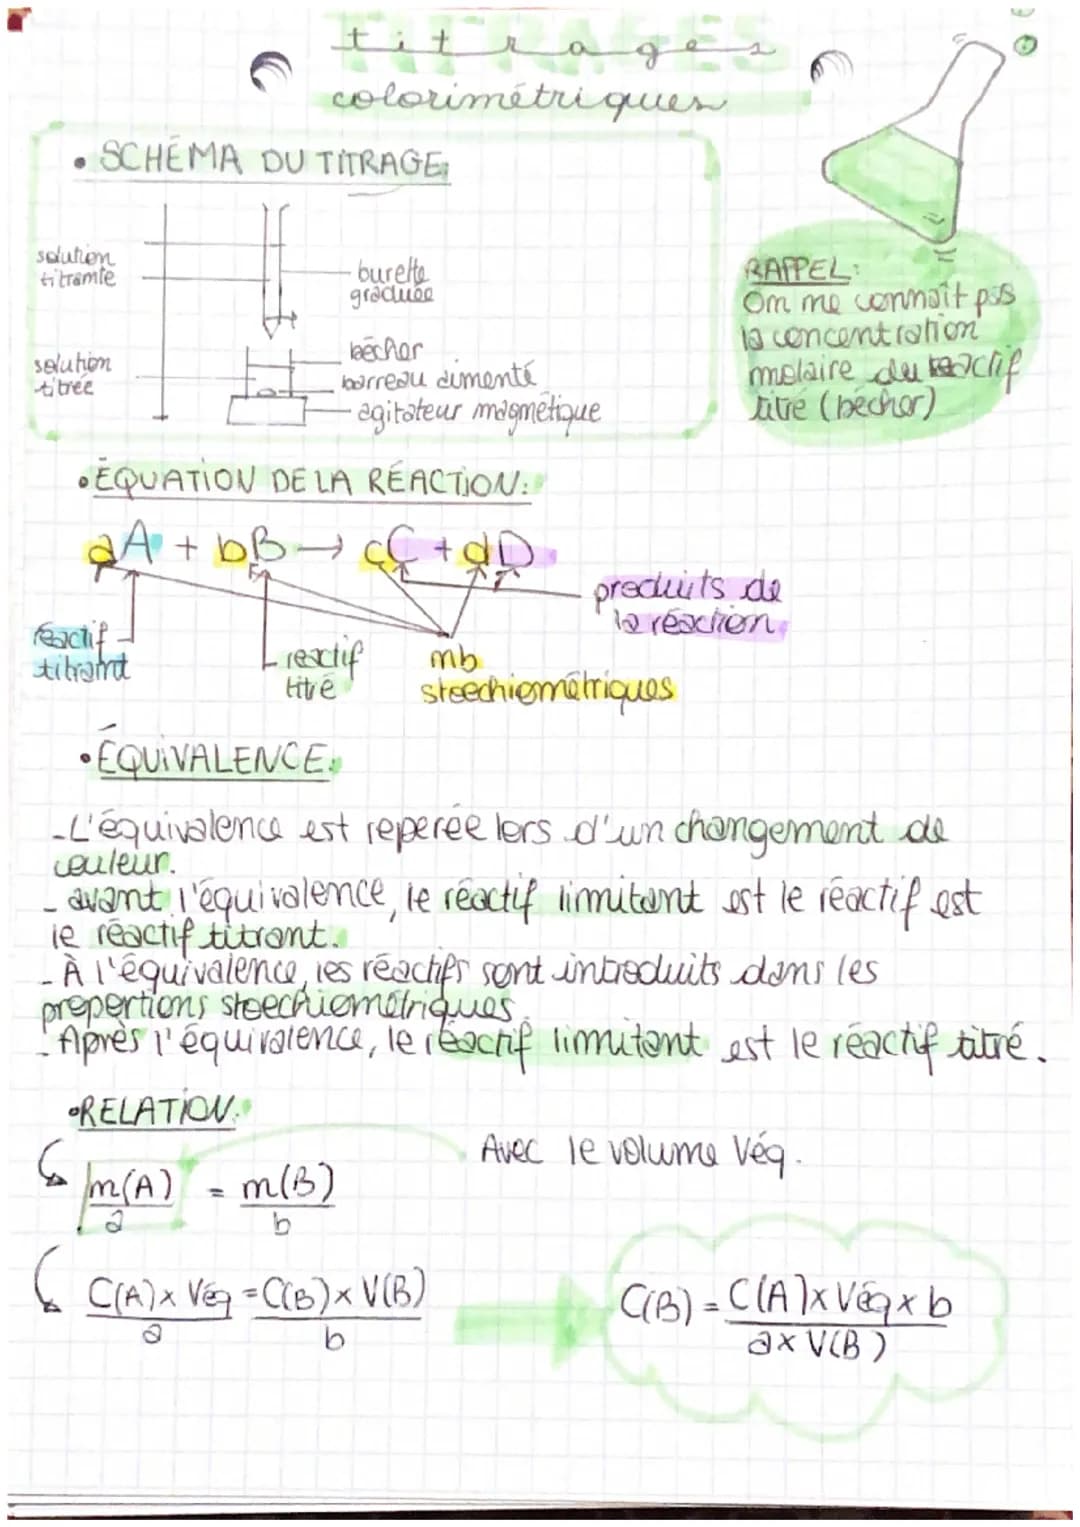 TITRAGES
titrages
colorimétriques
• SCHÉMA DU TITRAGE:
solution
titrante
burette
graduée
solution
titrée
bécher
barreau aimenté
agitateur magnétique
RAPPEL:
On ne connaît pas
la concentration
molaire du réactif
titré (bécher)
• ÉQUATION DE LA RÉACTION:
aA + bB → cC + dD
produits de
la réaction
réactif
titrant
réactif
titré
nb
stoechiométriques
• ÉQUIVALENCE:
- L'équivalence est reperée lors d'un changement de
couleur.
- avant l'équivalence, le réactif limitant est le réactif est
le réactif titrant.
- À l'équivalence, les réactifs sont introduits dans les
propertions stoechiométriques.
- Après l'équivalence, le réactif limitant est le réactif titré.
• RELATION:
Avec le volume Véq.
n(A)/a = n(B)/b
C(A) x Véq / a = C(B) x V(B) / b
C(B) = C(A) x Véq x b / a x V(B)